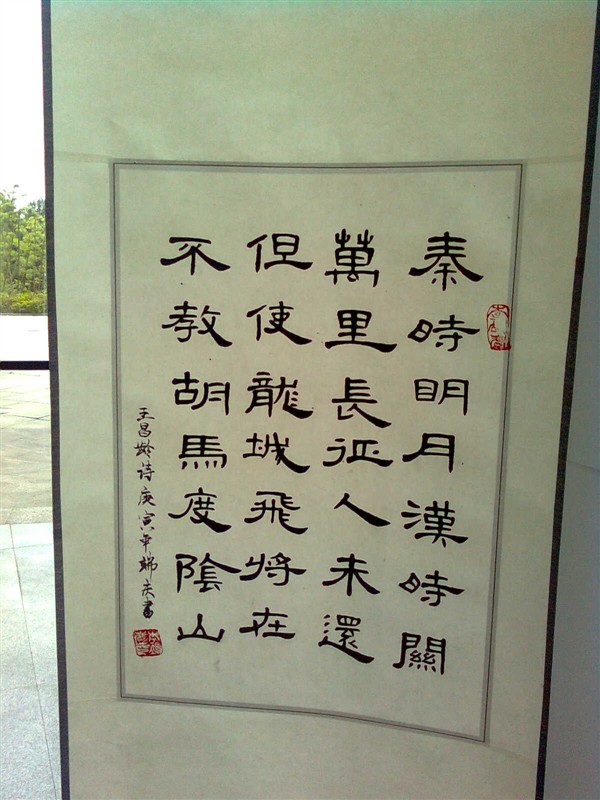 秦時明月漢時關
萬里長征人未還
但使龍城飛將在
不教胡馬度陰山
王昌齡诗庚寅年端午書